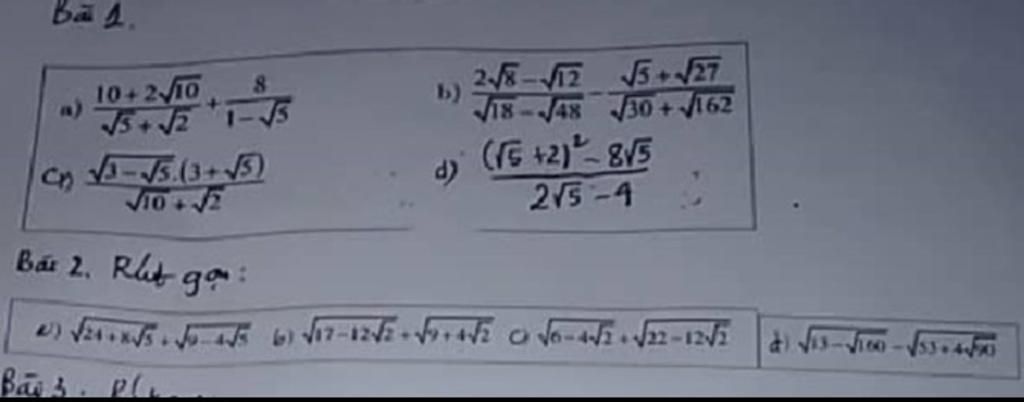 Bài 1.
a) \frac{10+2\sqrt{10}}{\sqrt{5}+\sqrt{2}} + \frac{8}{1-\sqrt{5}} b) \frac{2\sqrt{8}-\sqrt{12}}{\sqrt{18}-\sqrt{48}} - \frac{\sqrt{5}+\sqrt{27}}{\sqrt{30}+\sqrt{162}}
c) \frac{\sqrt{3-\sqrt{5}}.(3+\sqrt{5})}{\sqrt{10}+\sqrt{2}} d) \frac{(\sqrt{5}+2)^2-8\sqrt{5}}{2\sqrt{5}-4}
Bài 2. Rút gọn:
a) \sqrt{24+8\sqrt{5}}+\sqrt{9-4\sqrt{5}} b) \sqrt{17-12\sqrt{2}}+\sqrt{9+4\sqrt{2}} c) \sqrt{6-4\sqrt{2}}+\sqrt{22-12\sqrt{2}} d) \sqrt{13-\sqrt{160}}-\sqrt{53+4\sqrt{90}}
Bài 3.